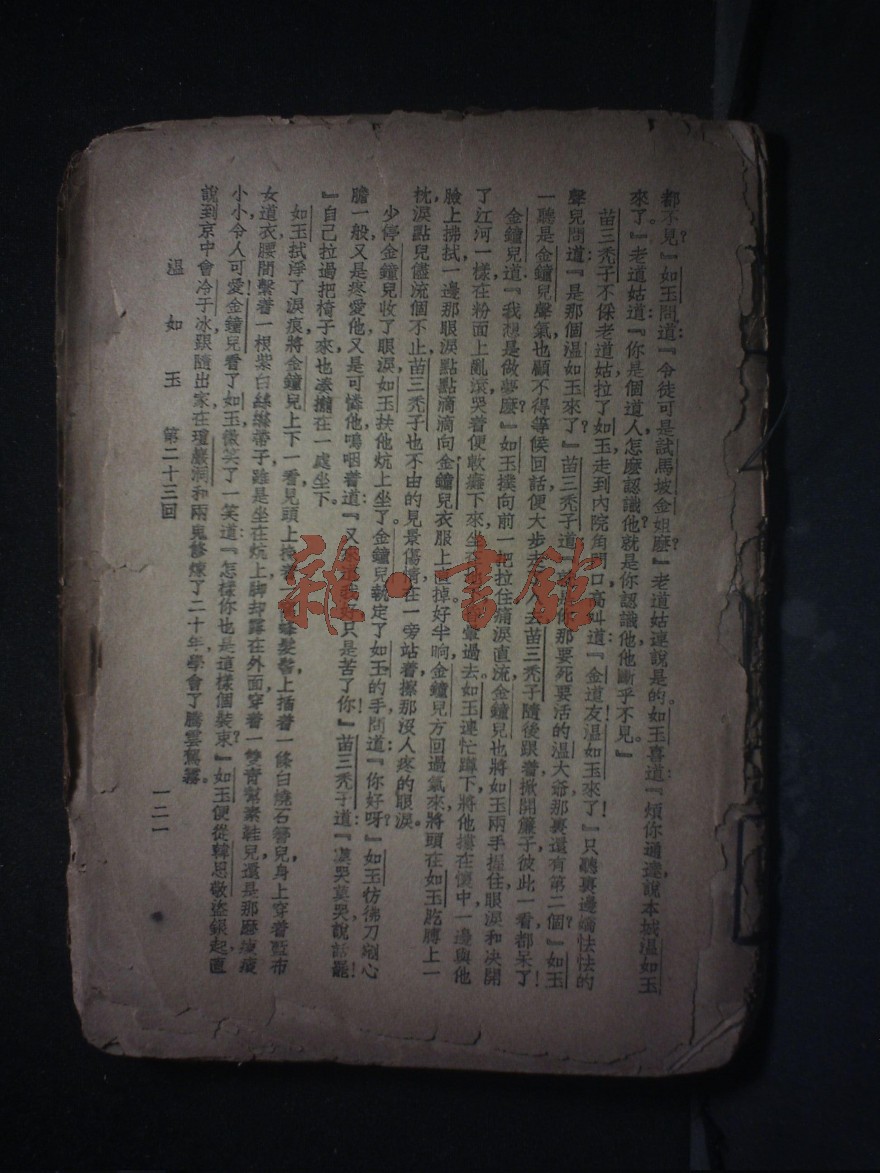 都不見？』如玉問道：『令徒可是試馬坡金姐麽？』老道姑連說是的。如玉喜道：『煩你通達說本城溫如玉
來了。』老道姑道：『你是個道人，怎麽認識他？就是你認識他，他斷乎不見。』
苗三禿子不倸老道姑，拉了如玉走到內院角門口，高叫道：『金道友，溫如玉來了！』只聽裏邊嬌怯怯的
聲兒問道：『是那個溫如玉來了？』苗三禿子道：『是你那要死要活的溫大爺，那裏還有第二個？』如玉
一聽是金鐘兒聲氣，也顧不得等候回話，便大步走了入去。苗三禿子隨後跟着，掀開簾子，彼此一看，都呆了！
金鐘兒道：『我想是做夢麽？』如玉撲向前一把拉住，痛淚直流。金鐘兒也將如玉兩手握住，眼淚和決開
了江河一樣，在粉面上亂滾。哭着便軟癱下來，坐在暈過去。如玉連忙蹲下，將他摟在懷中，一邊與他
臉上拂拭，一邊那眼淚點點滴滴向金鐘兒衣服上直掉。好半晌，金鐘兒方回過氣來，將頭在如玉肐膊上一
枕，淚點兒儘流個不止。苗三禿子也不由的見景傷情，在一旁站着擦那沒人疼的眼淚。
少停，金鐘兒收了眼淚，如玉扶他炕上坐了。金鐘兒執定了如玉的手問道：『你好呀？』如玉彷彿刀剜心
膽一般，又是疼愛他，又是可憐他，嗚咽着道：『又來我好，只是苦了你！』苗三禿子道：『莫哭莫哭，說話罷！
』自己拉過把椅子來，也湊攏在一處坐下。
如玉拭淨了淚痕，將金鐘兒上下一看，見頭上挽着蜂髮髻，上插着一條白燒石簪兒，身上穿着藍布
女道衣，腰間繫着一根紫白絲縧帶子，雖是坐在炕上，脚却露在外面，穿着一雙青幫素鞋兒，還是那麽瘦瘦
小小，令人可愛！金鐘兒看了如玉，微笑了一笑道：『怎樣你也是這樣個裝束？』如玉便從韓思敬盜銀起，直
說到京中會冷于冰，跟隨出家，在瓊巖洞和兩鬼修煉了二十年，學會了騰雲駕霧。
溫如玉 第二十三回 一二一
雜·書館